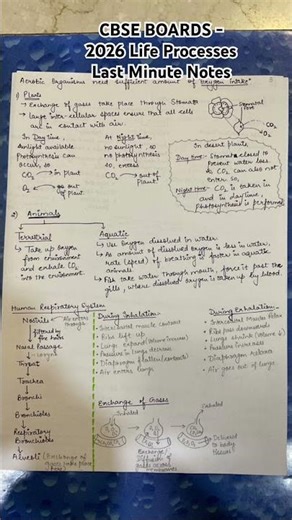 CBSE BOARDS -
2026 Life Processes
Last Minute Notes
Aerobic Organisms need sufficient amount of Oxygen intake
1) Plants
→ Exchange of gases take place through Stomata
→ large inter-cellular spaces ensure that all cells
are in contact with air.
Stomatal Pore
O2
CO2
In Day time,
Sunlight available
Photosynthesis can
occur, so
CO2 → in plant
O2 → go out of Plant.
At Night time,
no sunlight, so
no photosynthesis,
so, excess
CO2 → out of plant
In desert plants,
Day time:- Stomata closed to
prevent water loss
& CO2 can also not
enter so,
Night time:- CO2 is taken in
and in day time,
Photosynthesis is performed
2) Animals
Terrestrial
→ Take up Oxygen
from environment
and exhale CO2
into the environment
Aquatic
→ Use Oxygen dissolved in water
→ As amount of dissolved oxygen is less in water,
rate (speed) of breathing is faster in aquatic
animals.
→ Fish take water through mouth, force it past the
gills, where dissolved oxygen is taken up by blood.
Human Respiratory System
Nostrils → Air enters through
filtered by fine hairs
Nasal Passage
Throat
Trachea
Bronchi
Bronchioles
Respiratory
Bronchioles
Alveoli (Exchange of gases takes place here)
During Inhalation
• Intercostal muscle contract
• Ribs lift up
• Lungs expand (Volume increase)
• Pressure in lungs decrease
• Diaphragm flatten (contracts)
• Air enters lungs
During Exhalation
• Intercostal Muscle Relax
• Ribs pos downwards
• Lungs shrink (volume ↓)
• Pressure increases
• Diaphragm relaxes
• Air goes out of lungs
Exchange of Gases
Inhaled
Exhaled
Exchange
diffusion of
gases across
Delivered
to body
tissues